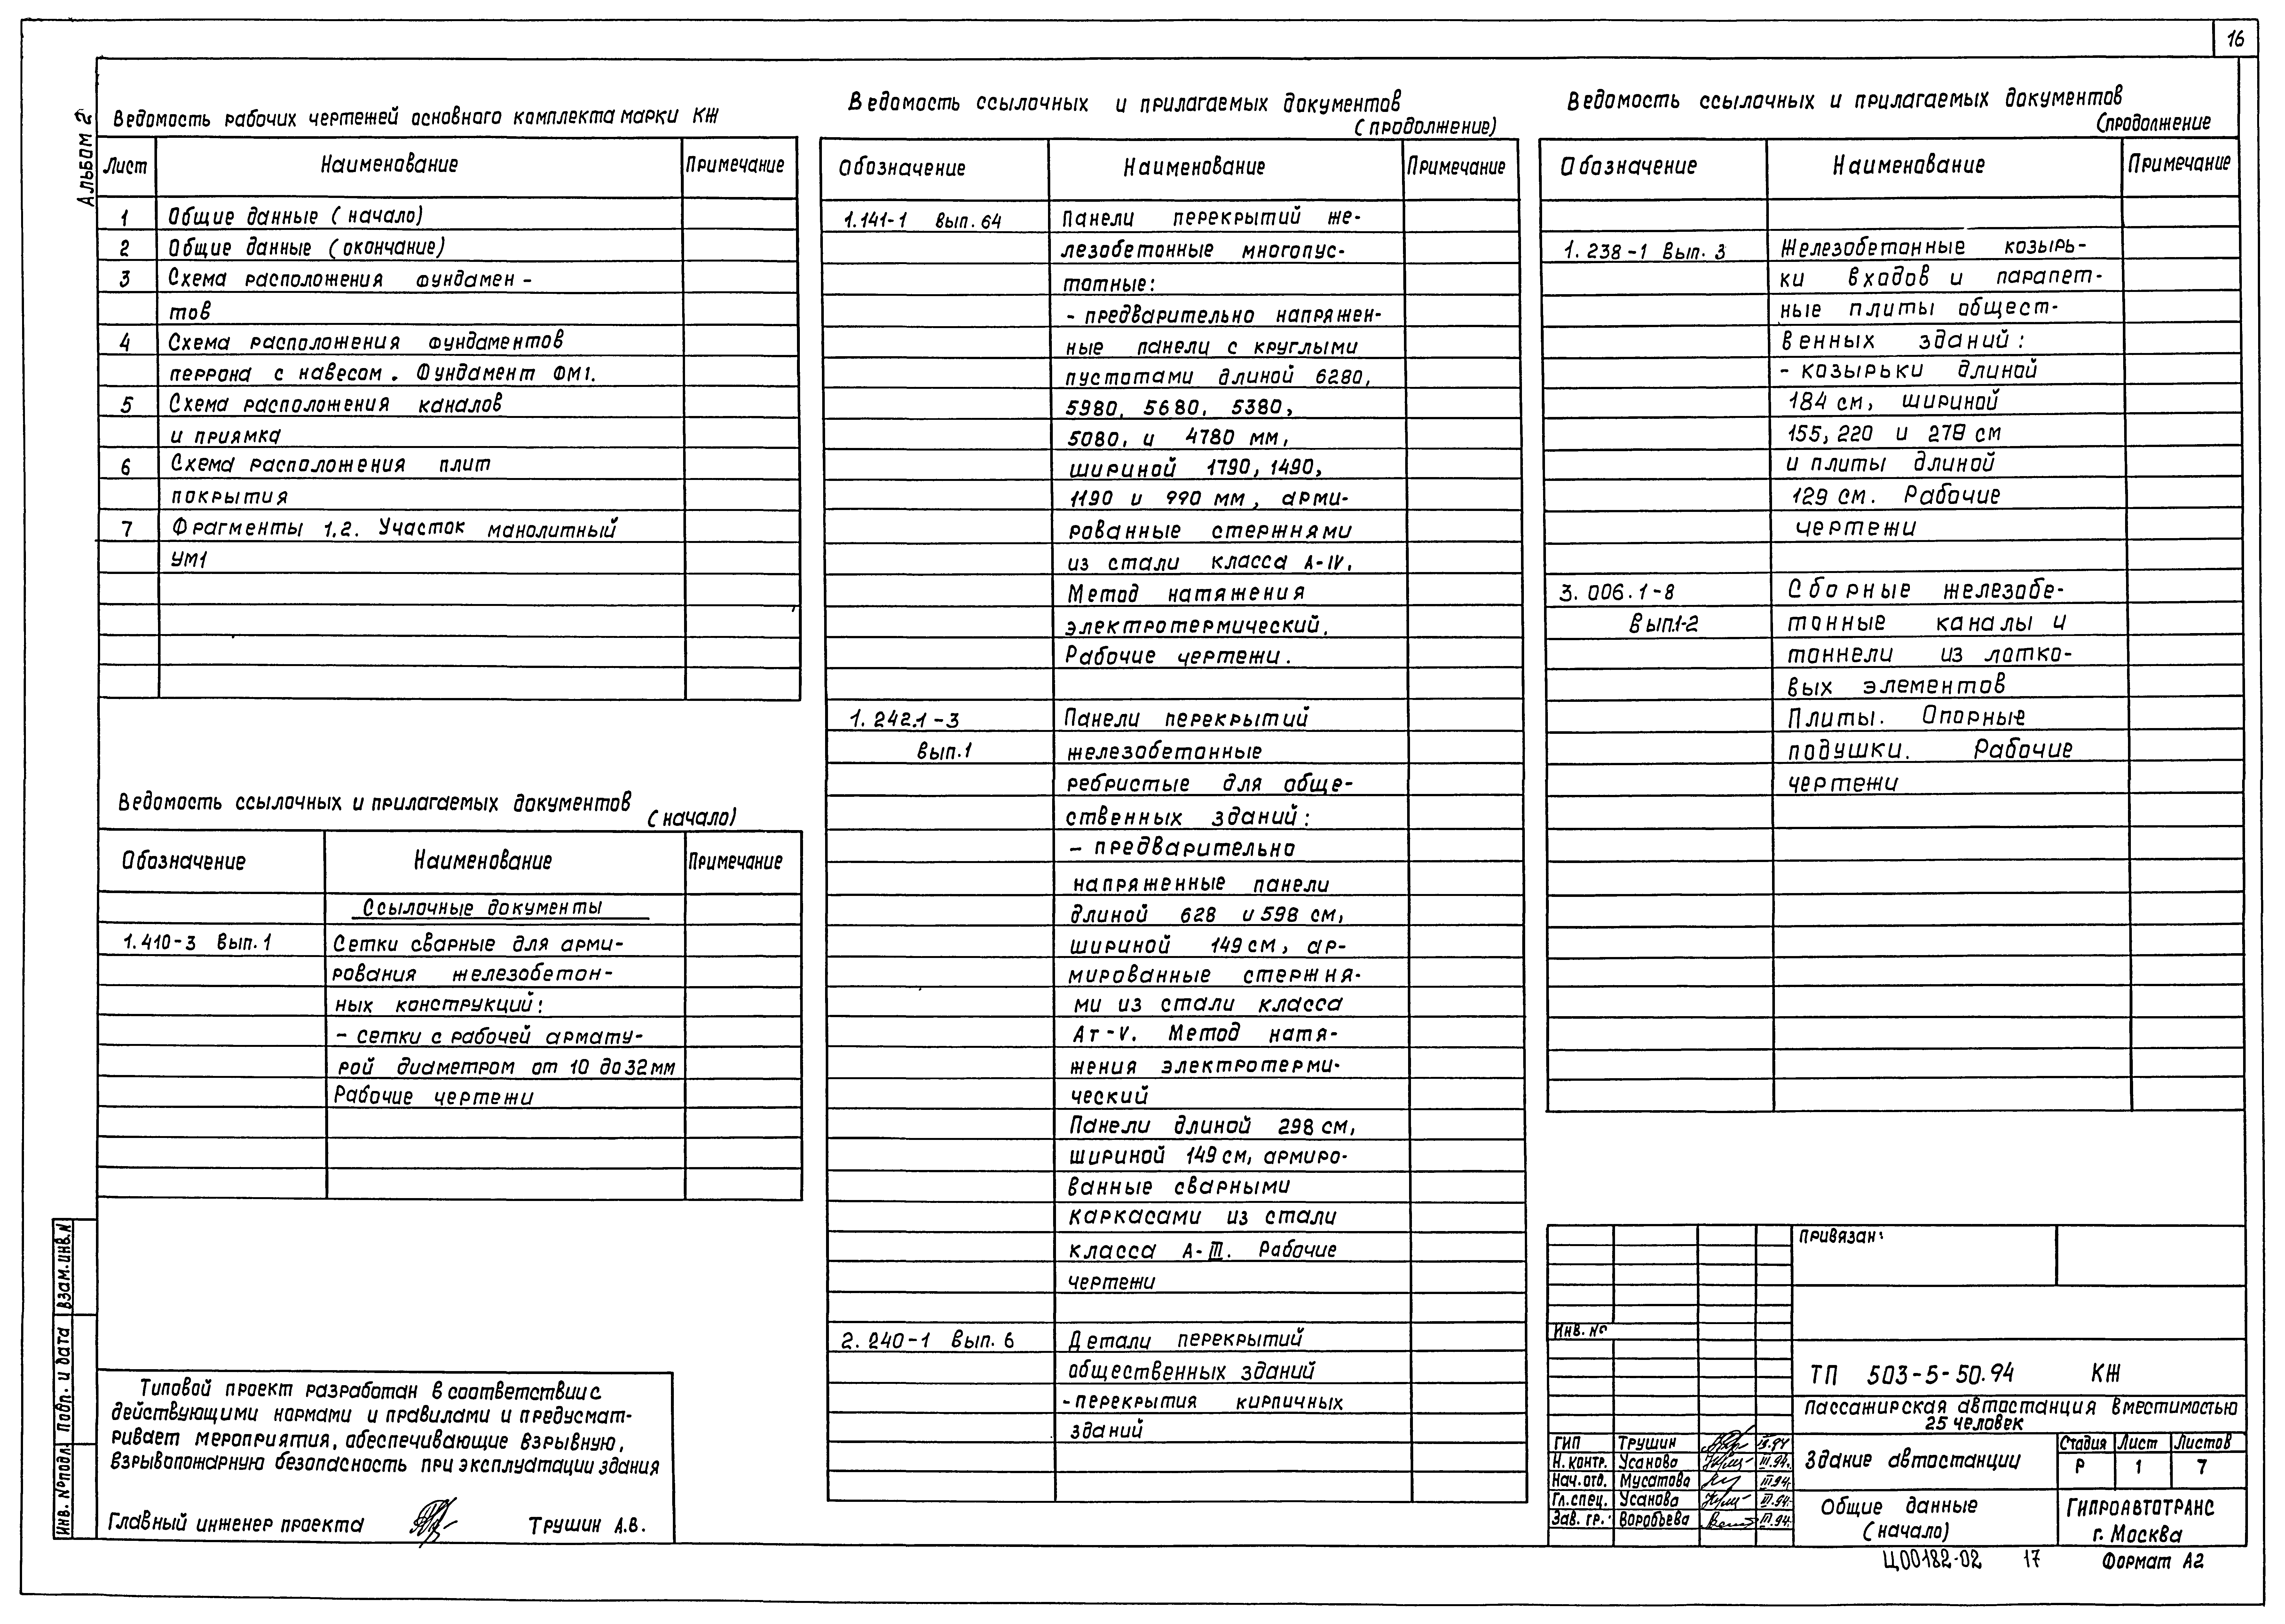 16
Альбом 2
Ведомость рабочих чертежей основного комплекта марки КЖ
Лист Наименование Примечание
1 Общие данные (начало)
2 Общие данные (окончание)
3 Схема расположения фундамен-
тов
4 Схема расположения фундаментов
перрона с навесом. Фундамент ФМ1.
5 Схема расположения каналов
и приямка
6 Схема расположения плит
покрытия
7 Фрагменты 1,2. Участок манолитный
УМ1
Ведомость ссылочных и прилагаемых документов
(начало)
Обозначение Наименование Примечание
Ссылочные документы
1.410-3 Вып.1 Сетки сварные для арми-
рования железобетон-
ных конструкций:
- сетки с рабочей армату-
рой диаметром от 10 до 32мм
Рабочие чертежи
Типовой проект разработан в соответствии с
действующими нормами и правилами и предусмат-
ривает мероприятия, обеспечивающие взрывную,
взрывопожарную безопасность при эксплуатации здания
Главный инженер проекта Трушин А.В.
Взам.инв.N
Подп. и дата
Инв. №подл.
Ведомость ссылочных и прилагаемых документов
(продолжение)
Обозначение Наименование Примечание
1.141-1 Вып. 64 Панели перекрытий же-
лезобетонные многопус-
тотные:
- предварительно напряжен-
ные панели с круглыми
пустотами длиной 6280,
5980, 5680, 5380,
5080, и 4780 мм,
шириной 1790, 1490,
1190 и 990 мм, арми-
рованные стержнями
из стали класса А-IV.
Метод натяжения
электротермический.
Рабочие чертежи.
1.242.1-3 Панели перекрытий
Вып.1 железобетонные
ребристые для обще-
ственных зданий:
- предварительно
напряженные панели
длиной 628 и 598 см,
шириной 149 см, ар-
мированные стержня-
ми из стали класса
Ат-V. Метод натя-
жения электротерми-
ческий
Панели длиной 298 см,
шириной 149 см, армиро-
ванные сварными
каркасами из стали
класса А-III. Рабочие
чертежи
2.240-1 Вып. 6 Детали перекрытий
общественных зданий
- перекрытия кирпичных
зданий
Ведомость ссылочных и прилагаемых документов
(продолжение
Обозначение Наименование Примечание
1.238-1 Вып. 3 Железобетонные козырь-
ки входов и парапет-
ные плиты общест-
венных зданий:
- козырьки длиной
184 см, шириной
155, 220 и 278 см
и плиты длиной
129 см. Рабочие
чертежи
3.006.1-8 Сборные железобе-
Вып.1-2 тонные каналы и
тоннели из лотко-
вых элементов
Плиты. Опорные
подушки. Рабочие
чертежи
Привязан:
Инв. №
ТП 503-5-50.94 КЖ
Пассажирская автостанция вместимостью
25 человек
ГИП Трушин III.94
Н. контр. Усанова III.94.
Нач. отд. Мусатова III.94.
Гл. спец. Усанова III.94.
Зав. гр. Воробьева III.94.
Здание автостанции
Стадия Лист Листов
Р 1 7
Общие данные
(начало)
ГИПРОАВТОТРАНС
г. Москва
Ц00182-02 17 Формат А2